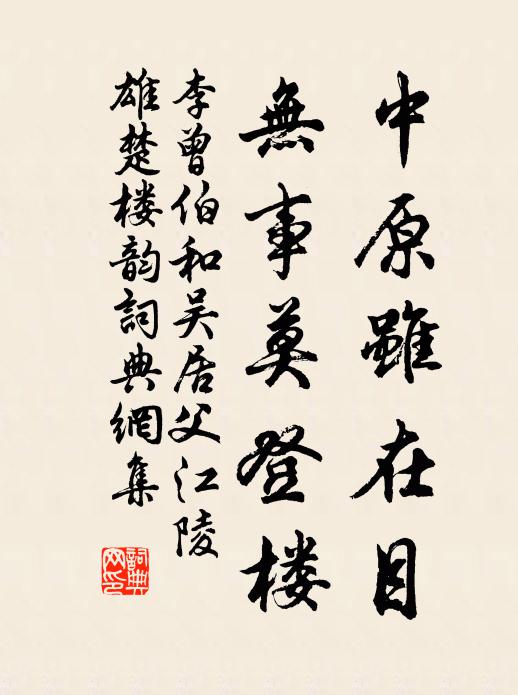 中原雖在目
無事莫登楼
李曾伯和吴居父江陵
雄楚楼韵詞典網集
詞典网印